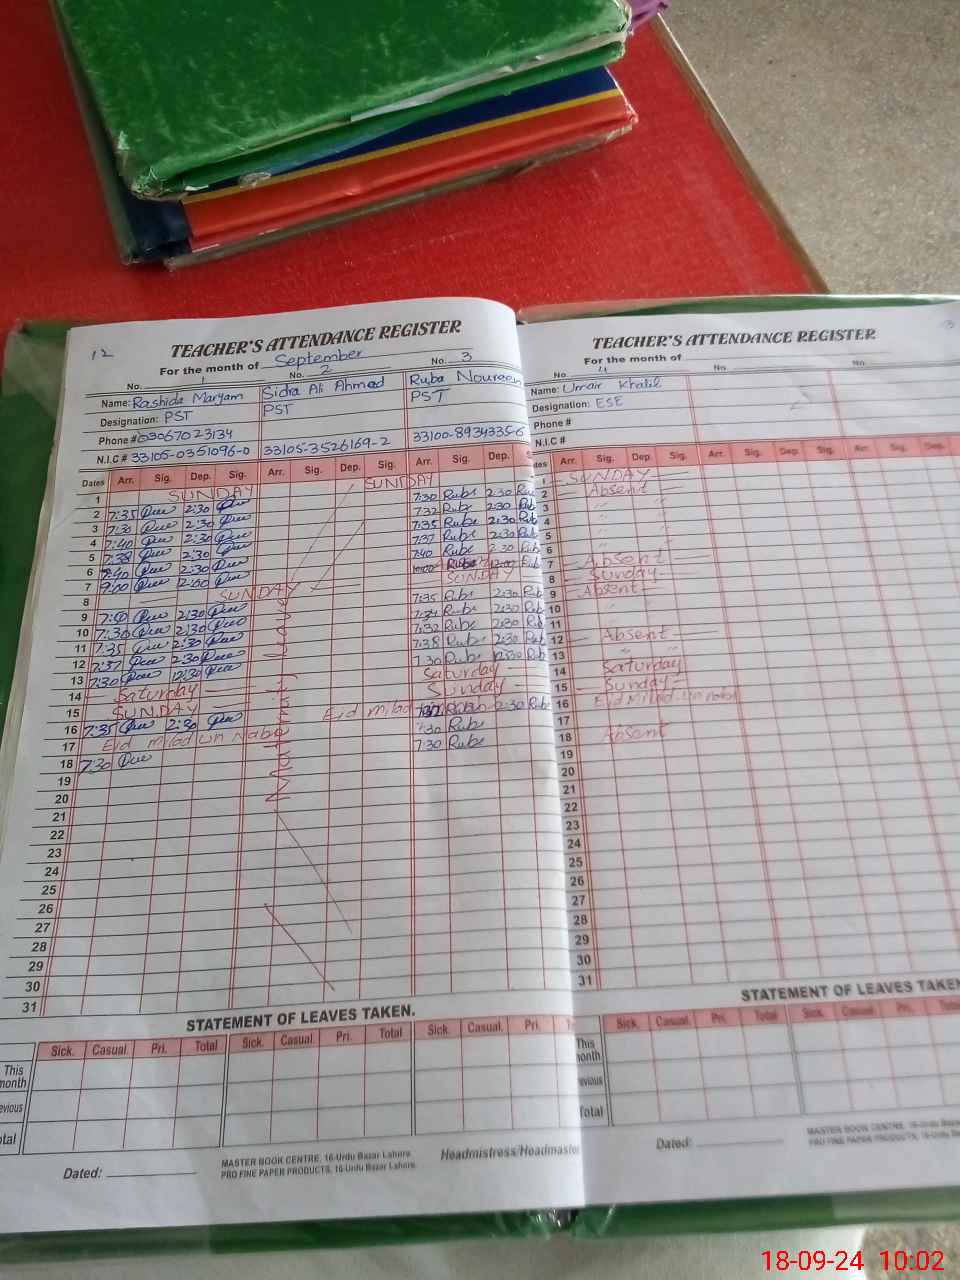 12
TEACHER'S ATTENDANCE REGISTER
For the month of September
No. 1 No. 2 No. 3
Name: Rashida Maryam Sidra Ali Ahmad Ruba Noureen
Designation: PST PST PST
Phone # 03067023134
N.I.C # 33105-0351096-0 33105-3526169-2 33100-8934335-6
Dates Arr. Sig. Dep. Sig. Arr. Sig. Dep. Sig. Arr. Sig. Dep. S
1 SUNDAY SUNDAY
2 7:35 2:30 7:30 Rubs 2:30
3 7:30 2:30 7:32 Rubs 2:30
4 7:40 2:30 7:35 Rubs 2:30
5 7:38 2:30 7:37 Rubs 2:30
6 7:40 2:30 7:40 Rubs 2:30
7 12:00 12:00
8 SUNDAY SUNDAY
9 2:30 7:35 Rubs 2:30
10 7:30 2:30 Rubs 2:30
11 7:35 2:30 7:32 Rubs 2:30
12 7:37 2:30 7:38 Rubs 2:30
13 7:30 12:30 7:30 Rubs 12:30
14 Saturday Saturday
15 SUNDAY Sunday
16 7:35 2:30 2:30
17 Eid milad un Nabi Eid milad un 7:30 Rubs
18 7:30 7:30 Rubs
Maternity Leave
19
20
21
22
23
24
25
26
27
28
29
30
31
STATEMENT OF LEAVES TAKEN.
Sick. Casual. Pri. Total Sick. Casual. Pri. Total Sick. Casual. Pri. T
This month
evious
otal
Dated:
MASTER BOOK CENTRE, 16-Urdu Bazar Lahore
PRO FINE PAPER PRODUCTS, 16-Urdu Bazar Lahore.
Headmistress/Headmaster
3
TEACHER'S ATTENDANCE REGISTER
For the month of
No. 4 No. No.
Name: Umair Khalil
Designation: ESE
Phone #
N.I.C #
ates Arr. Sig. Dep. Sig. Arr. Sig. Dep. Sig. Arr. Sig. Dep.
1 SUNDAY
2 Absent
3 "
4 "
5 "
6 "
7 Absent
8 Sunday
9 Absent
10 "
11 "
12 Absent
13 " "
14 Saturday
15 Sunday
16 Eid Milad un nabi
17
18 Absent
19
20
21
22
23
24
25
26
27
28
29
30
31
STATEMENT OF LEAVES TAKEN
Sick. Casual. Pri. Total Sick. Casual. Pri. Total
This month
evious
Total
Dated:
MASTER BOOK CENTRE, 16-Urdu
PRO FINE PAPER PRODUCTS, 16-Urdu
18-09-24 10:02